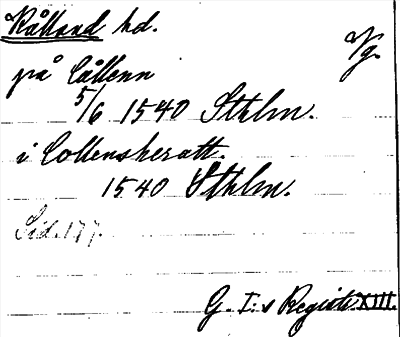 Kålland hd. Vg.
på Cållenn
5/6 1540 Sthlm.
i Collensheratt.
1540 Sthlm.
Sid. 177.
G. I:s Registr. XIII.